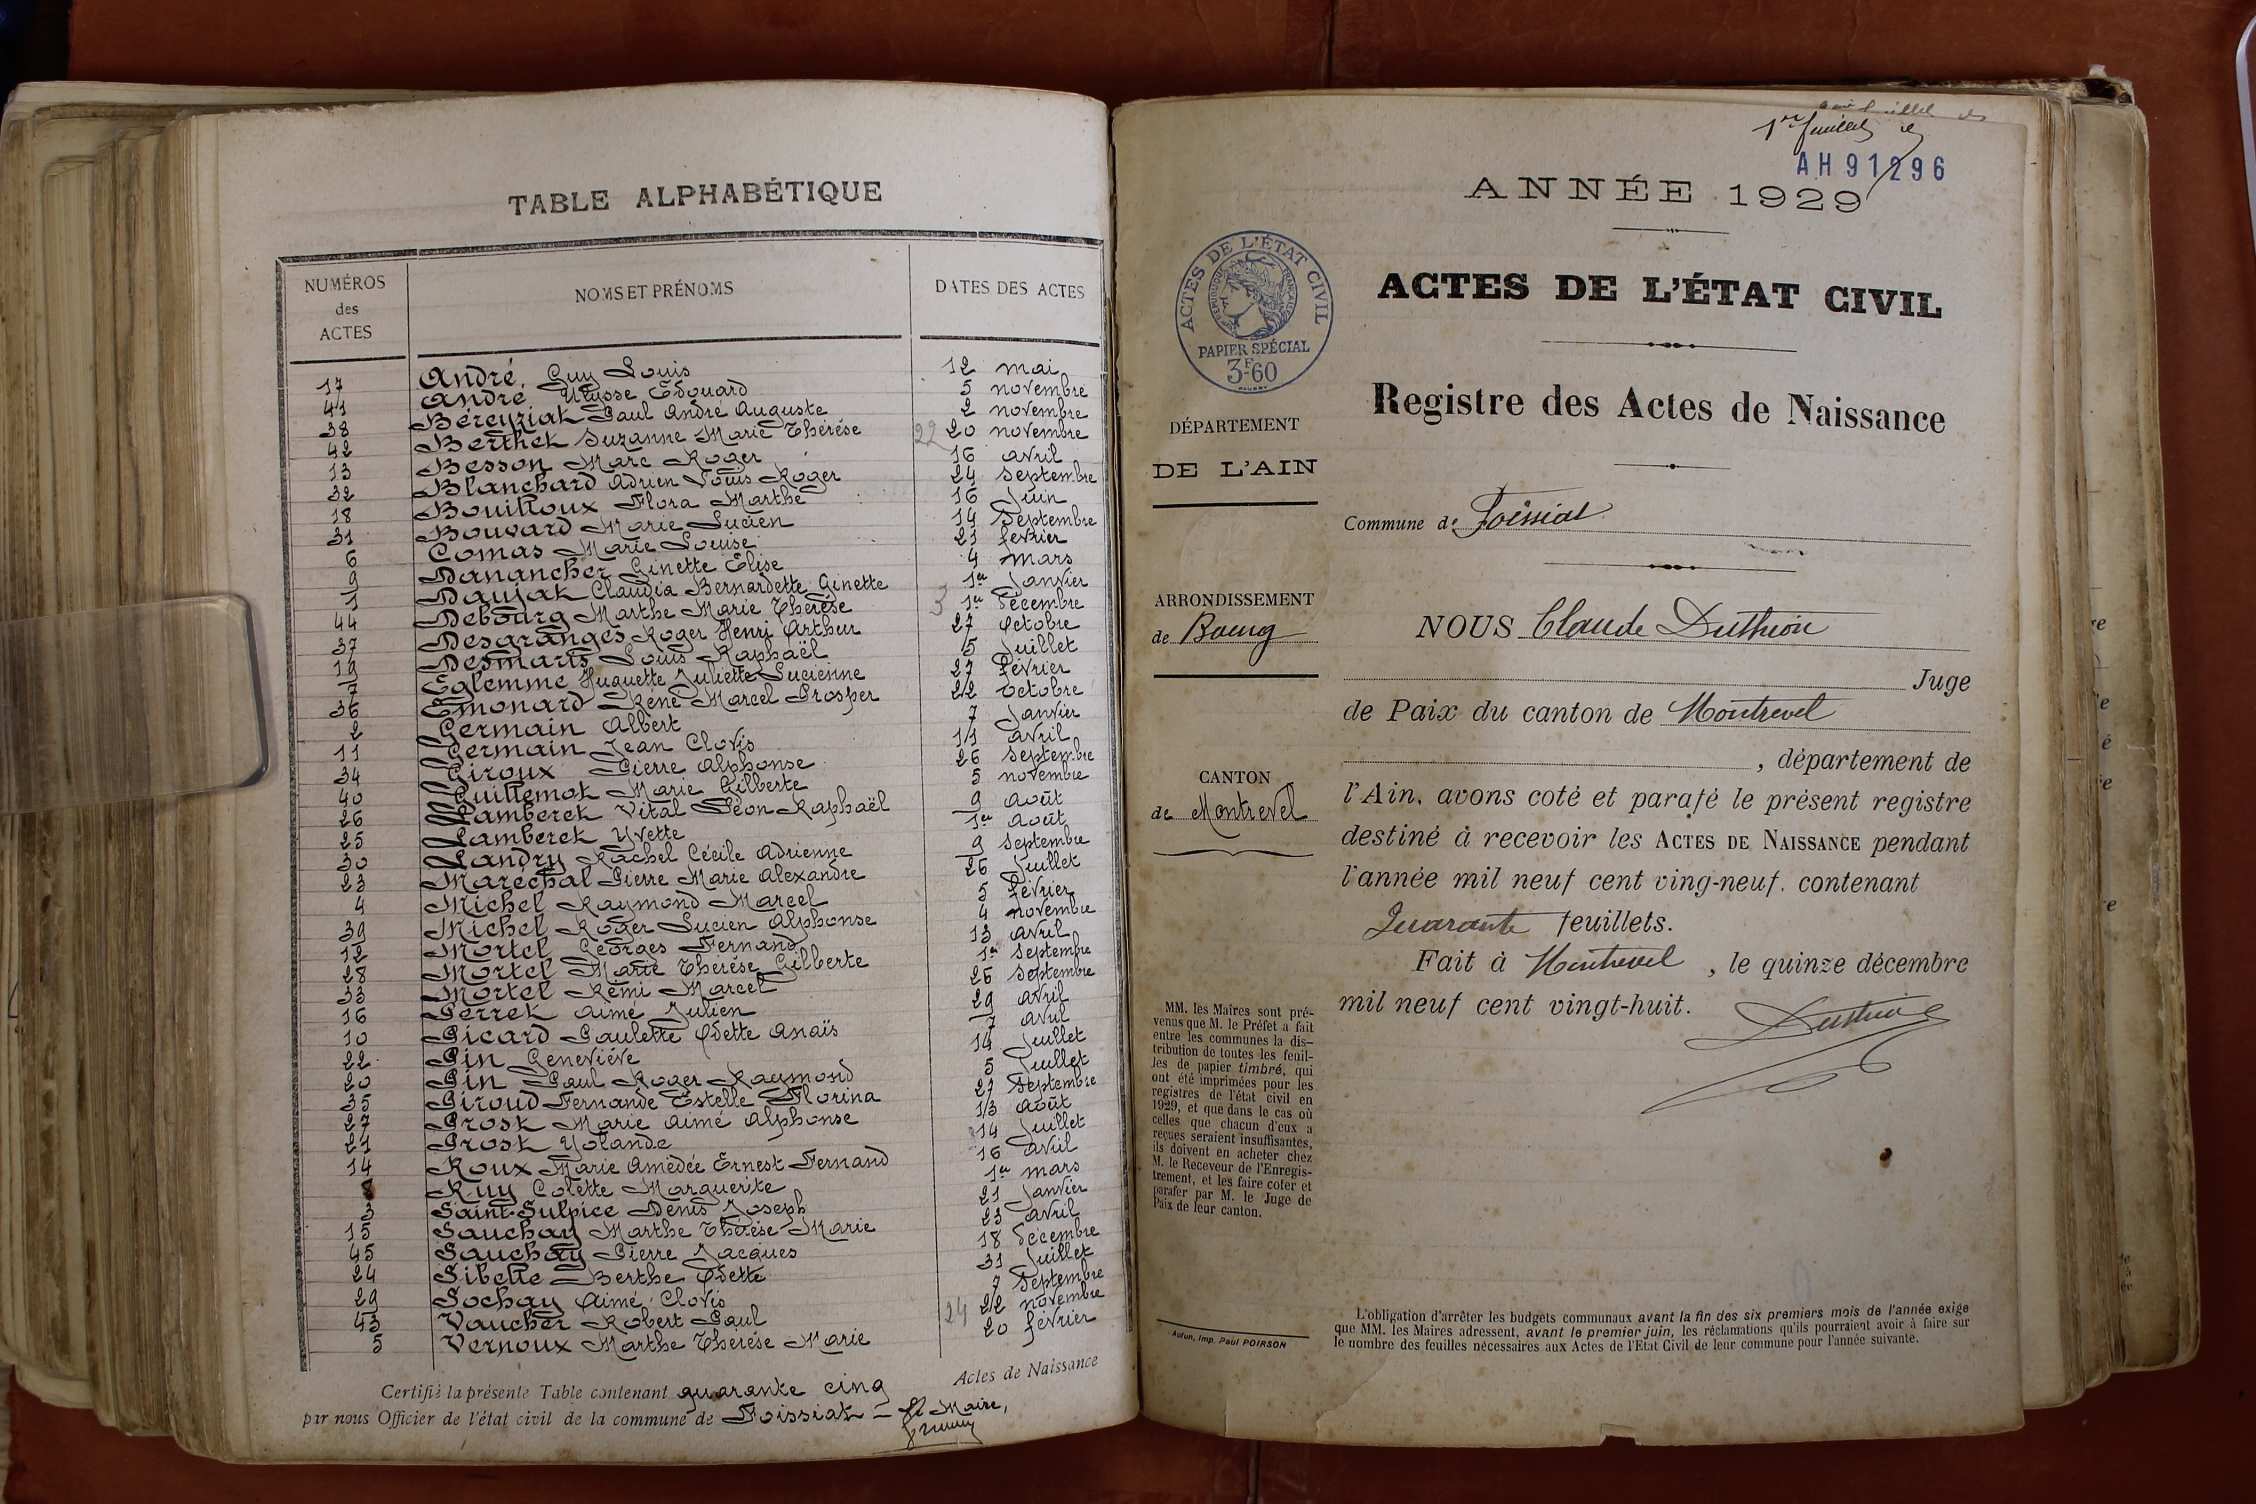 TABLE ALPHABÉTIQUE
NUMÉROS des ACTES NOMS ET PRÉNOMS DATES DES ACTES
17 André, Guy Louis 12 mai
41 André Ulysse Edouard 5 novembre
38 Béreyziat Paul André Auguste 2 novembre
42 Berthet Suzanne Marie Thérèse 22 20 novembre
13 Besson Marc Roger 16 avril
32 Blanchard Adrien Louis Roger 24 septembre
18 Bouilloux Flora Marthe 16 Juin
31 Bouvard Marie Lucien 14 Septembre
6 Comas Marie Louise 21 février
9 Danancher Ginette Elise 4 mars
1 Daujat Claudia Bernardette Ginette 1er Janvier
44 Debourg Marthe Marie Thérèse 3 1er Décembre
37 Desgranges Roger Henri Arthur 27 Octobre
19 Desmaris Louis Raphaël 5 Juillet
7 Eglemme Huguette Juliette Lucienne 27 Février
36 Emonard René Marcel Prosper 22 octobre
2 Germain Albert 7 Janvier
11 Germain Jean Clovis 11 avril
34 Giroux Pierre Alphonse 26 septembre
40 Guillemot Marie Gilberte 5 novembre
26 Lamberet Vital Léon Raphaël 9 août
25 Lamberet Yvette 1er août
30 Landry Rachel Cécile Adrienne 9 septembre
23 Maréchal Pierre Marie Alexandre 26 Juillet
4 Michel Raymond Marcel 5 février
39 Michel Roger Lucien Alphonse 4 novembre
12 Mortel Georges Fernand 13 avril
28 Mortel Marie Thérèse Gilberte 1er septembre
33 Mortel Rémi Marcel 26 septembre
16 Perret Aimé Julien 29 avril
10 Picard Paulette Odette Anaïs 7 avril
22 Pin Geneviève 14 Juillet
20 Pin Paul Roger Raymond 5 Juillet
35 Piroud Fernande Estelle Florina 27 Septembre
27 Prost Marie Aimé Alphonse 13 août
21 Prost Yolande 14 Juillet
14 Roux Marie Amédée Ernest Fernand 16 avril
8 Ruy Colette Marguerite 1er mars
3 Saint-Sulpice Denis Joseph 21 Janvier
15 Sauchay Marthe Thérèse Marie 23 avril
45 Sauchay Pierre Jacques 18 décembre
24 Sibelle Berthe Odette 31 Juillet
29 Sochay Aimé Clovis 7 septembre
43 Vaucher Robert Paul 24 22 novembre
5 Vernoux Marthe Thérèse Marie 20 février
Certifié la présente Table contenant quarante cinq Actes de Naissance
par nous Officier de l'état civil de la commune de Foissiat - Le Maire,
1er feuillet
AH 91296
ANNÉE 1929
ACTES DE L'ÉTAT CIVIL
PAPIER SPÉCIAL
3F60
ACTES DE L'ÉTAT CIVIL
Registre des Actes de Naissance
DÉPARTEMENT
DE L'AIN
Commune de Foissiat
ARRONDISSEMENT
de Bourg
CANTON
de Montrevel
NOUS Claude Duthion
Juge
de Paix du canton de Montrevel
, département de
l'Ain, avons coté et parafé le présent registre
destiné à recevoir les ACTES DE NAISSANCE pendant
l'année mil neuf cent ving-neuf. contenant
Quarante feuillets.
Fait à Montrevel , le quinze décembre
mil neuf cent vingt-huit.
Duthion
MM. les Maires sont pré-
venus que M. le Préfet a fait
entre les communes la dis-
tribution de toutes les feuil-
les de papier timbré, qui
ont été imprimées pour les
registres de l'état civil en
1929, et que dans le cas où
celles que chacun d'eux a
reçues seraient insuffisantes,
ils doivent en acheter chez
M. le Receveur de l'Enregis-
trement, et les faire coter et
parafer par M. le Juge de
Paix de leur canton.
Autun, Imp. Paul POIRSON
L'obligation d'arrêter les budgets communaux avant la fin des six premiers mois de l'année exige
que MM. les Maires adressent, avant le premier juin, les réclamations qu'ils pourraient avoir à faire sur
le nombre des feuilles nécessaires aux Actes de l'Etat Civil de leur commune pour l'année suivante.